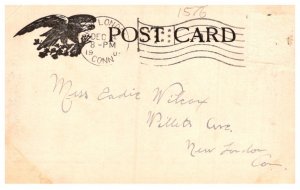 1576
LON
DEC
8-PM
19
CONN
POST CARD
Miss Sadie Wilcox
Willets Ave.
New London
Con.